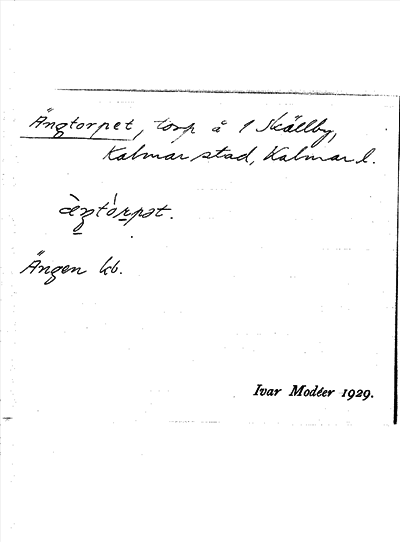 Ängtorpet, torp å 1 Skälby,
Kalmar stad, Kalmar l.
Ängen kb.
Ivar Modéer 1929.